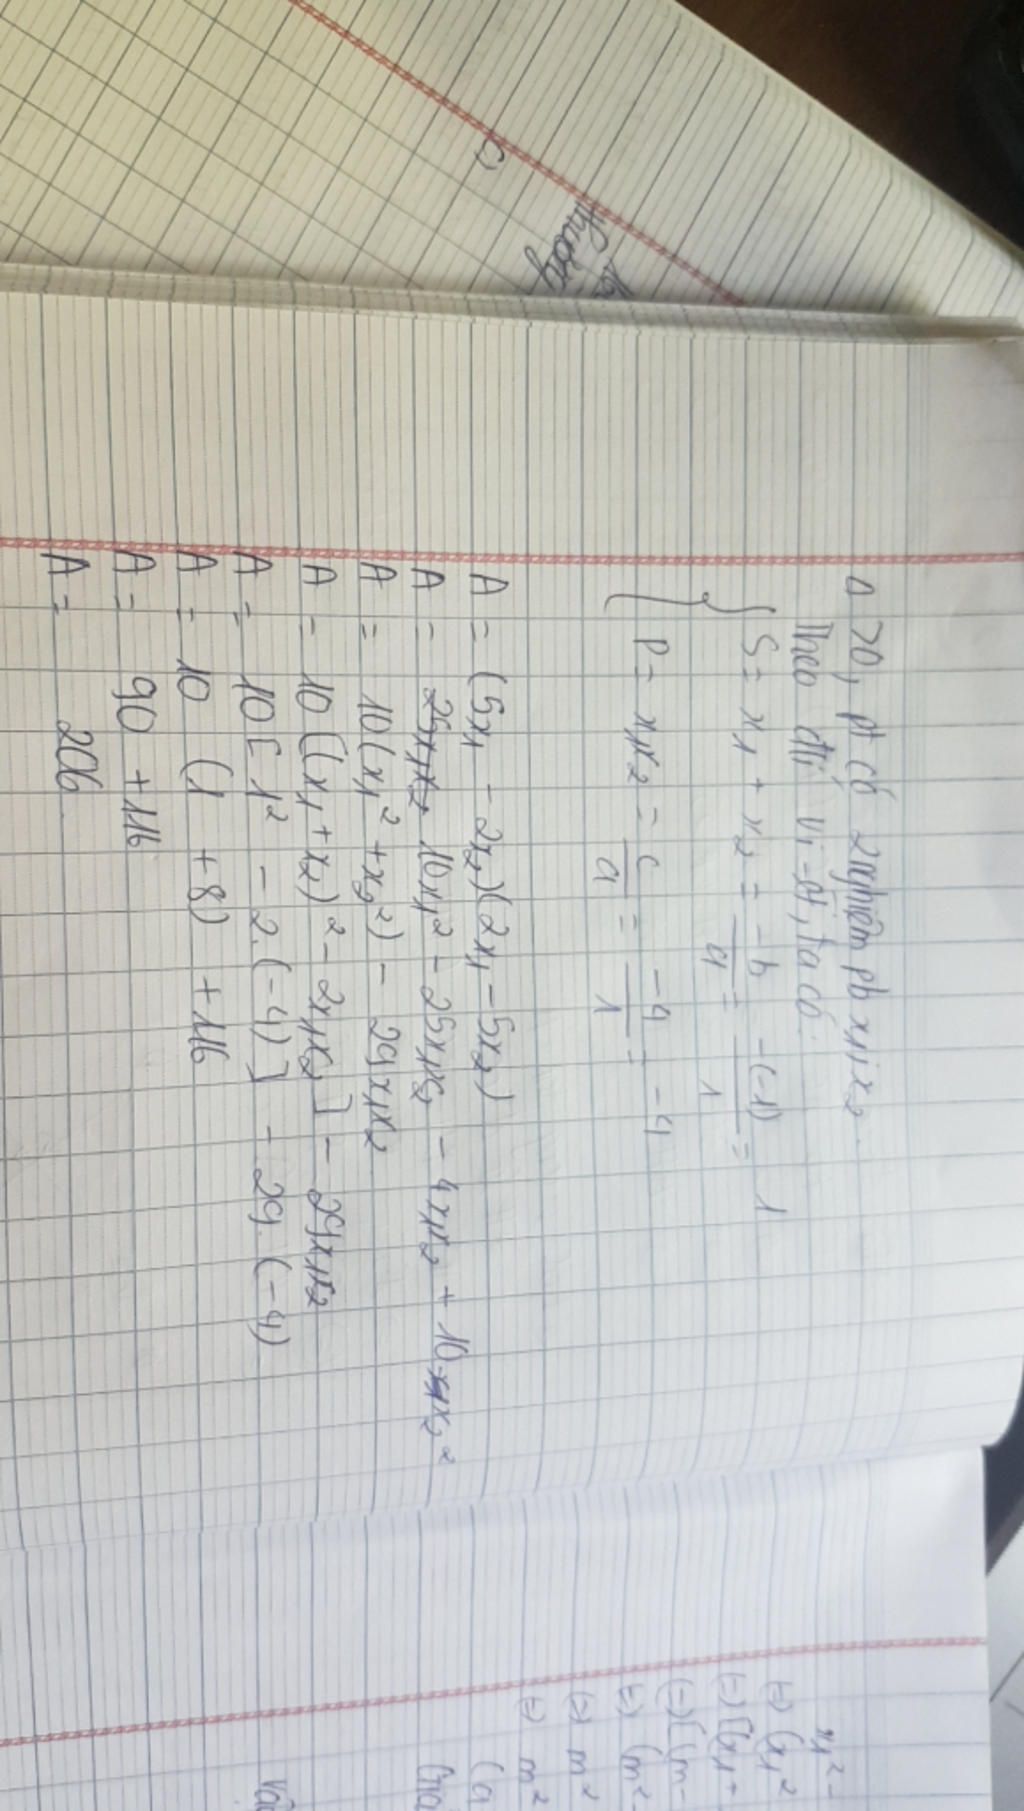 Δ >0, pt có 2 nghiệm pb x₁; x₂.
Theo đlí Vi-ét, ta có:
S = x₁ + x₂ = -b/a = -(-1)/1 = 1
P = x₁x₂ = c/a = -4/1 = -4
A = (5x₁ - 2x₂)(2x₁ - 5x₂)
A = 10x₁² - 25x₁x₂ - 4x₁x₂ + 10x₂²
A = 10(x₁² + x₂²) - 29x₁x₂
A = 10[(x₁ + x₂)² - 2x₁x₂] - 29x₁x₂
A = 10[1² - 2.(-4)] - 29.(-4)
A = 10 (1 + 8) + 116
A = 90 + 116
A = 206
c)
thường
x₁² -
(=) (x₁²
(=) [(x₁ +
(=) [(m -
(=) (m² -
(=) m²
(=) m²
(a